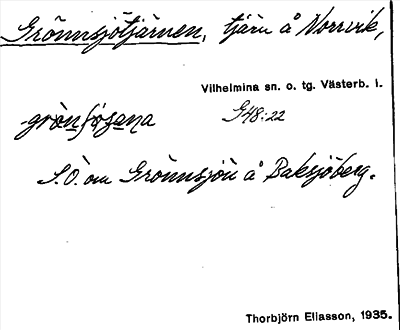 Grönnsjötjärnen, tjärn å Norrvik,
Vilhelmina sn. o. tg. Västerb. l.
G48:22
S.O. om Grönnsjön å Baksjöberg.
Thorbjörn Eliasson, 1935.